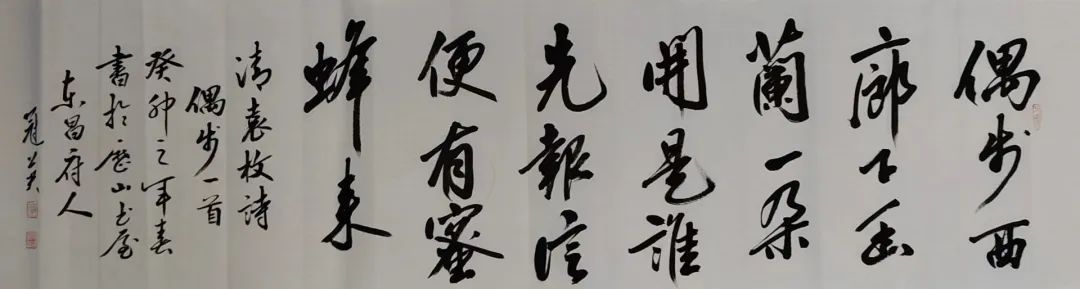 偶步西
廊下幽
蘭一朵
開是誰
先報信
便有蜜
蜂来
清袁枚詩
偶步一首
癸卯之年春
書於歷山书屋
东昌府人